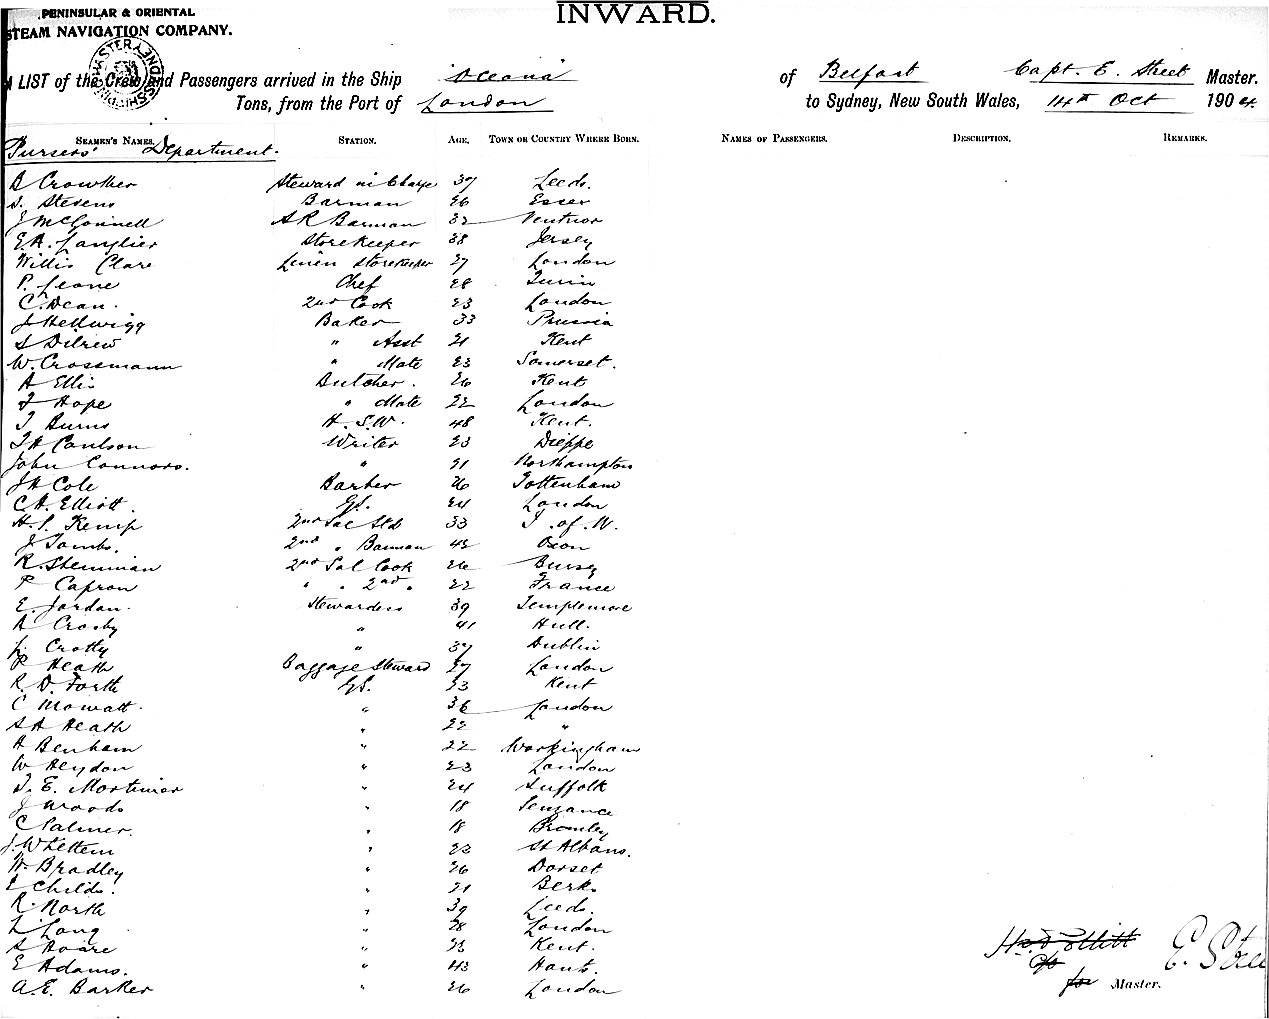 INWARD.
PENINSULAR & ORIENTAL
STEAM NAVIGATION COMPANY.
A LIST of the Crew and Passengers arrived in the Ship "Oceana" of Belfast Capt. E. Street Master.
Tons, from the Port of London to Sydney, New South Wales, 14th Oct 1904.
SEAMEN'S NAMES. STATION. AGE. TOWN OR COUNTRY WHERE BORN. NAMES OF PASSENGERS. DESCRIPTION. REMARKS.
Pursers' Department.
B Crowther Steward in Charge 37 Leeds.
S. Stevens Barman 26 Essex
J McConnell Barman 32 Ventnor
E.A. Langlier Storekeeper 38 Jersey
Willis Clare Linen Storekeeper 27 London
P. Leone Chef 28 Turin
C. Dean. 2nd Cook 23 London
J Hellwigg Baker 33 Prussia
S Dilrew " Asst 21 Kent
W. Crossmann " Mate 23 Somerset.
A Ellis Butcher. 26 Kent
J Hope " Mate 22 London
T Burns H.S.W. 48 Kent.
Coulson Writer 23 Dieppe
John Connors. " 21 Northampton
J A Cole Barber 26 Tottenham
C A. Elliott. G.S. 24 London
H. S. Kemp 2nd Sal Std 33 I. of. W.
J Tombs. 2nd " Barman 42 Oxon
R. Stemman 2nd Sal Cook 26
P Capron " " 2nd " 22 France
E. Jordan. Stewardess 39 Templemore
A Crosby " 41 Hull.
L. Crotty " 37 Dublin
P Heath Baggage Steward 27 London
R. D. Forth G.S. 23 Kent
C Mowatt. " 36 London
S A Heath " 22 "
A Benham " 22 Workingham
W Heydon " 23 London
T. E. Mortimer " 24 Suffolk
J Woods " 18 Penzance
C Palmer. " 18 Bromley
J. Whettem " 23 St Albans.
W. Bradley " 26 Dorset
Childs. " 21 Berks
R. North " 39 Leeds.
L Long " 28 London
S Hoare " 23 Kent.
E Adams. " 43 Hants.
A. E. Barker " 26 London
E. Street
for Master.